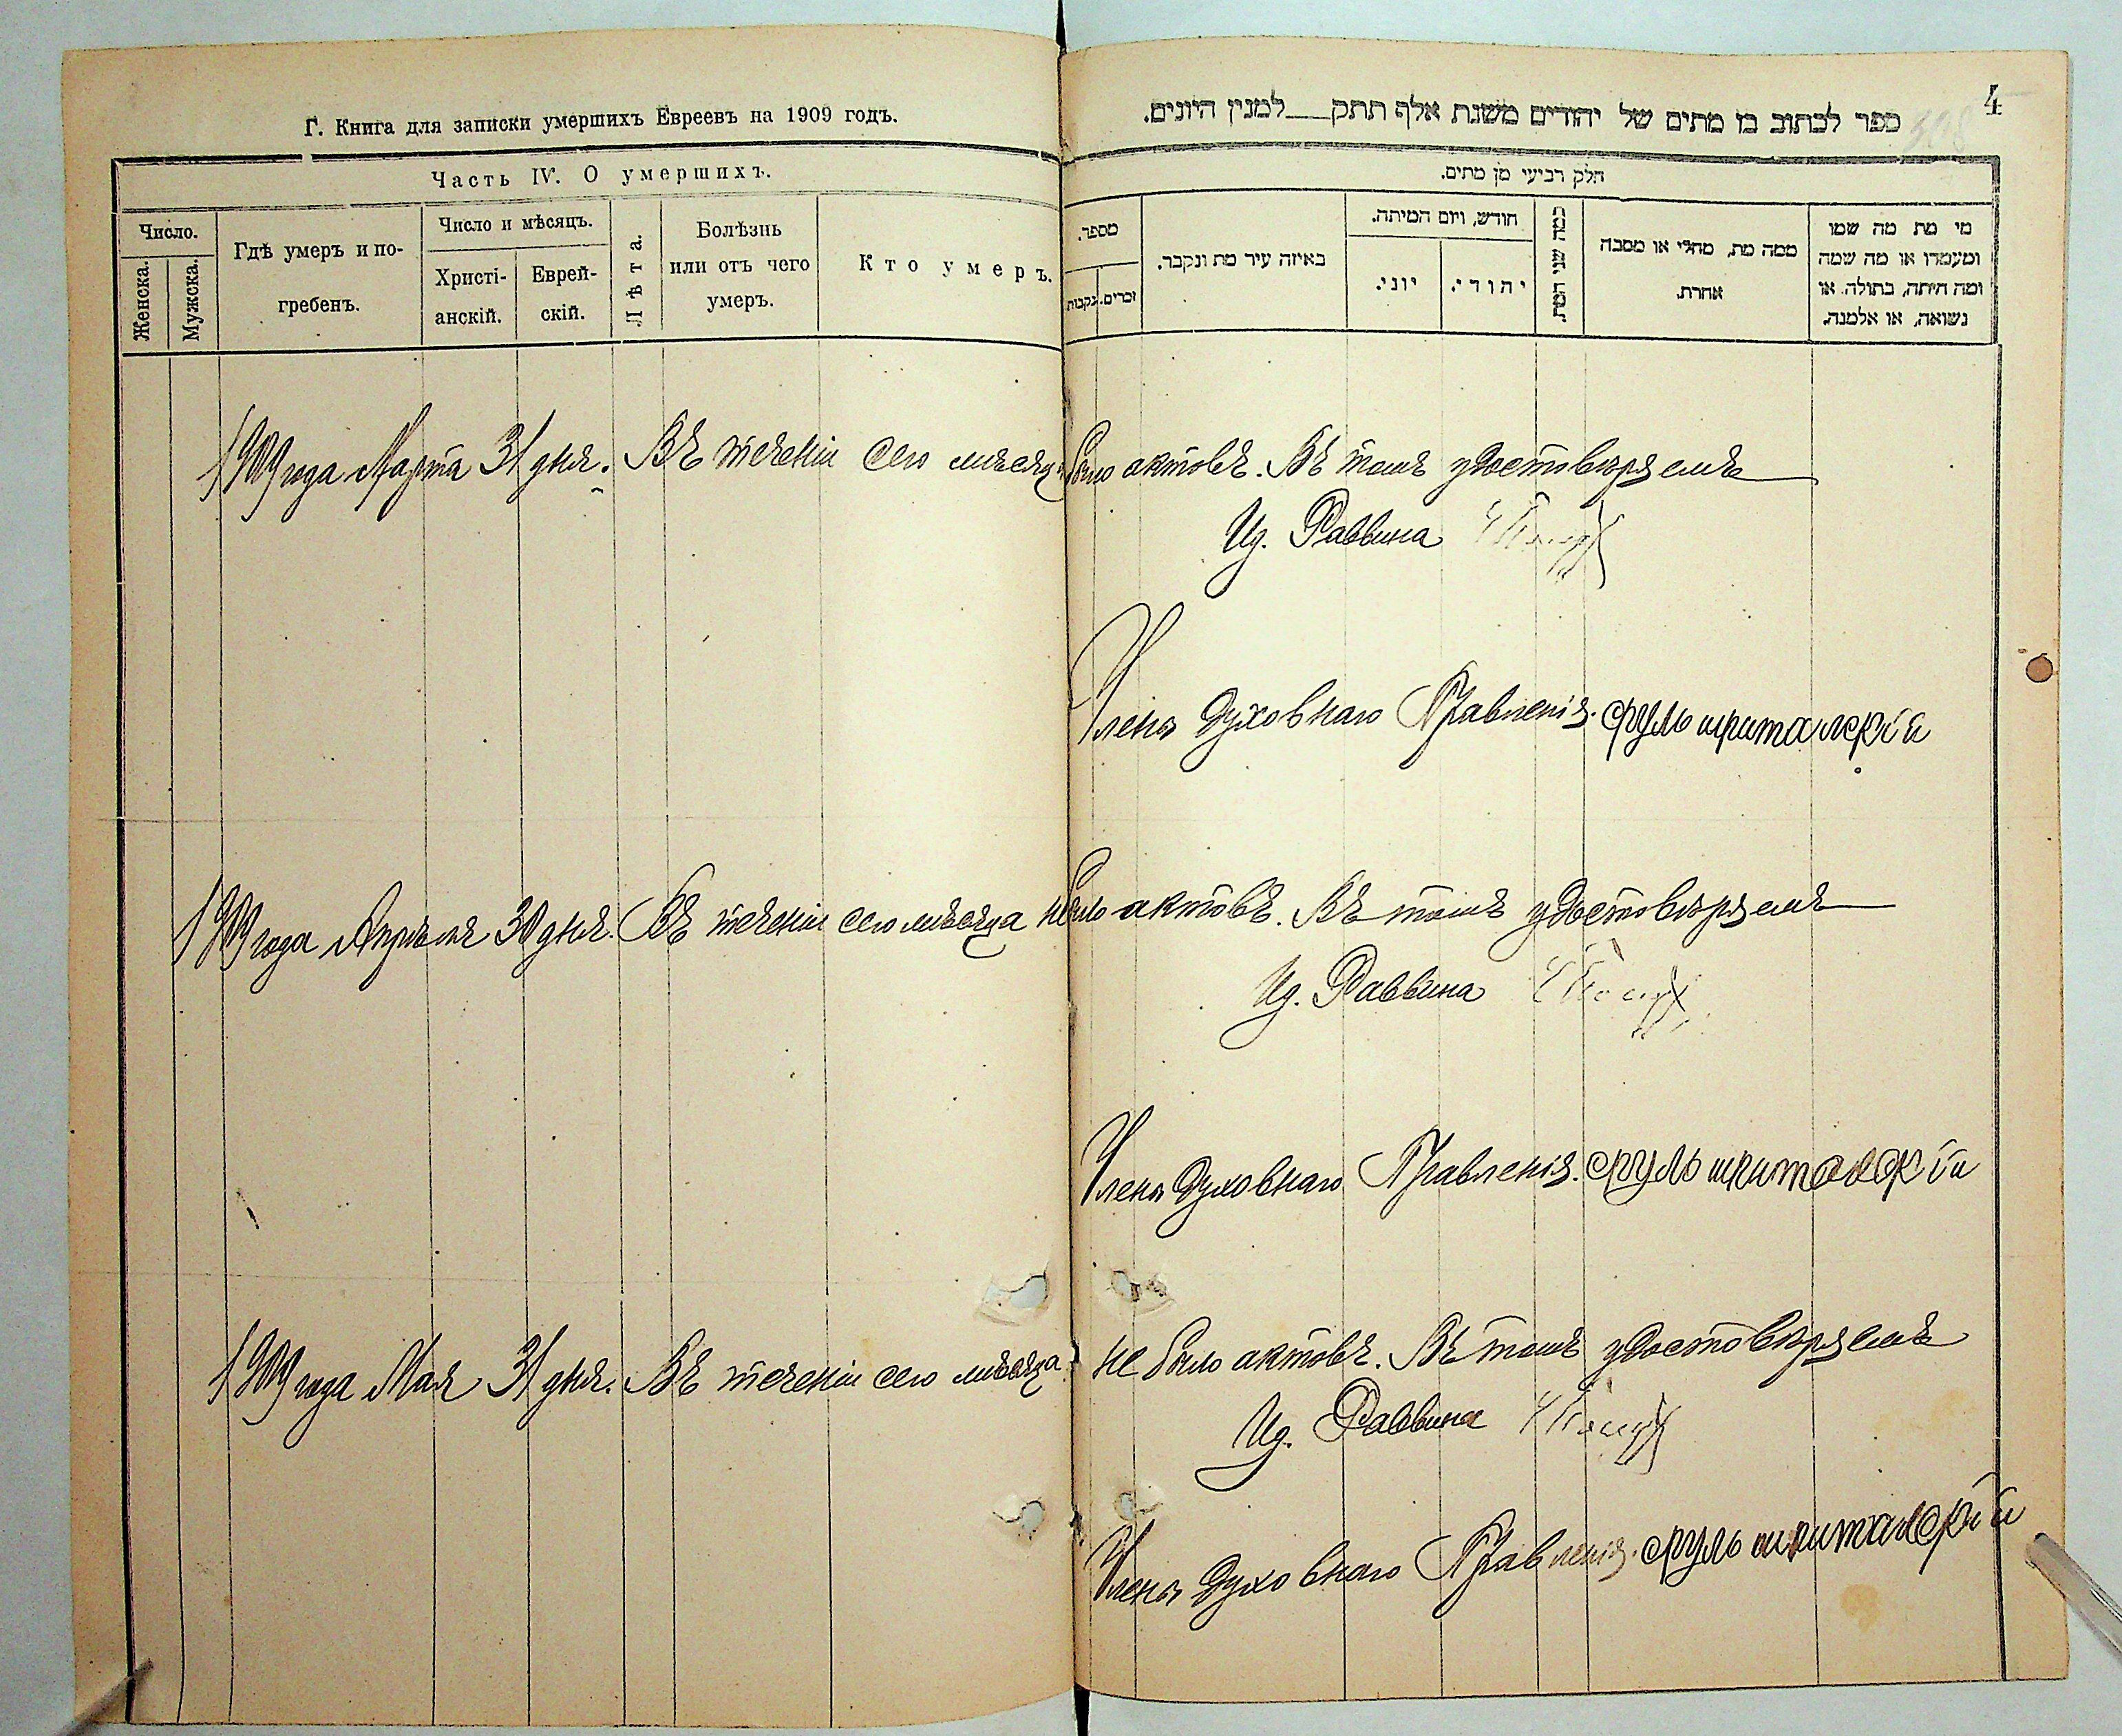 Г. Книга для записки умершихъ Евреевъ на 1909 годъ.
Часть IV. О умершихъ.
Число.
Женска.
Мужска.
Гдѣ умеръ и по-
гребенъ.
Число и мѣсяцъ.
Христі-
анскій.
Еврей-
скій.
Лѣта.
Болѣзнь
или отъ чего
умеръ.
Кто умеръ.
4
ספר לכתוב בו מתים של יהודים משנת אלף תתק___למנין היונים.
חלק רביעי מן מתים.
מספר.
נקבות
זכרים.
באיזה עיר מת ונקבר.
חודש, ויום המיתה.
יוני.
יהודי.
כמה שני המת.
ממה מת, מחלי או מסבה
אחרת.
מי מת מה שמו
ומעמדו או מה שמה
ומה היתה, בתולה, או
נשואה, או אלמנה.
1909 года Марта 31 дня. Въ теченіи сего мѣсяца было актовъ. Въ томъ удостовѣряемъ
Ид. Раввина
Членъ Духовнаго Правленія. сруль
1909 года Апрѣля 30 дня. Въ теченіи сего мѣсяца не было актовъ. Въ томъ удостовѣряемъ
Ид. Раввина
Членъ Духовнаго Правленія. сруль
1909 года Мая 31 дня. Въ теченіи сего мѣсяца не было актовъ. Въ томъ удостовѣряемъ
Ид. Раввина
Членъ Духовнаго Правленія. сруль